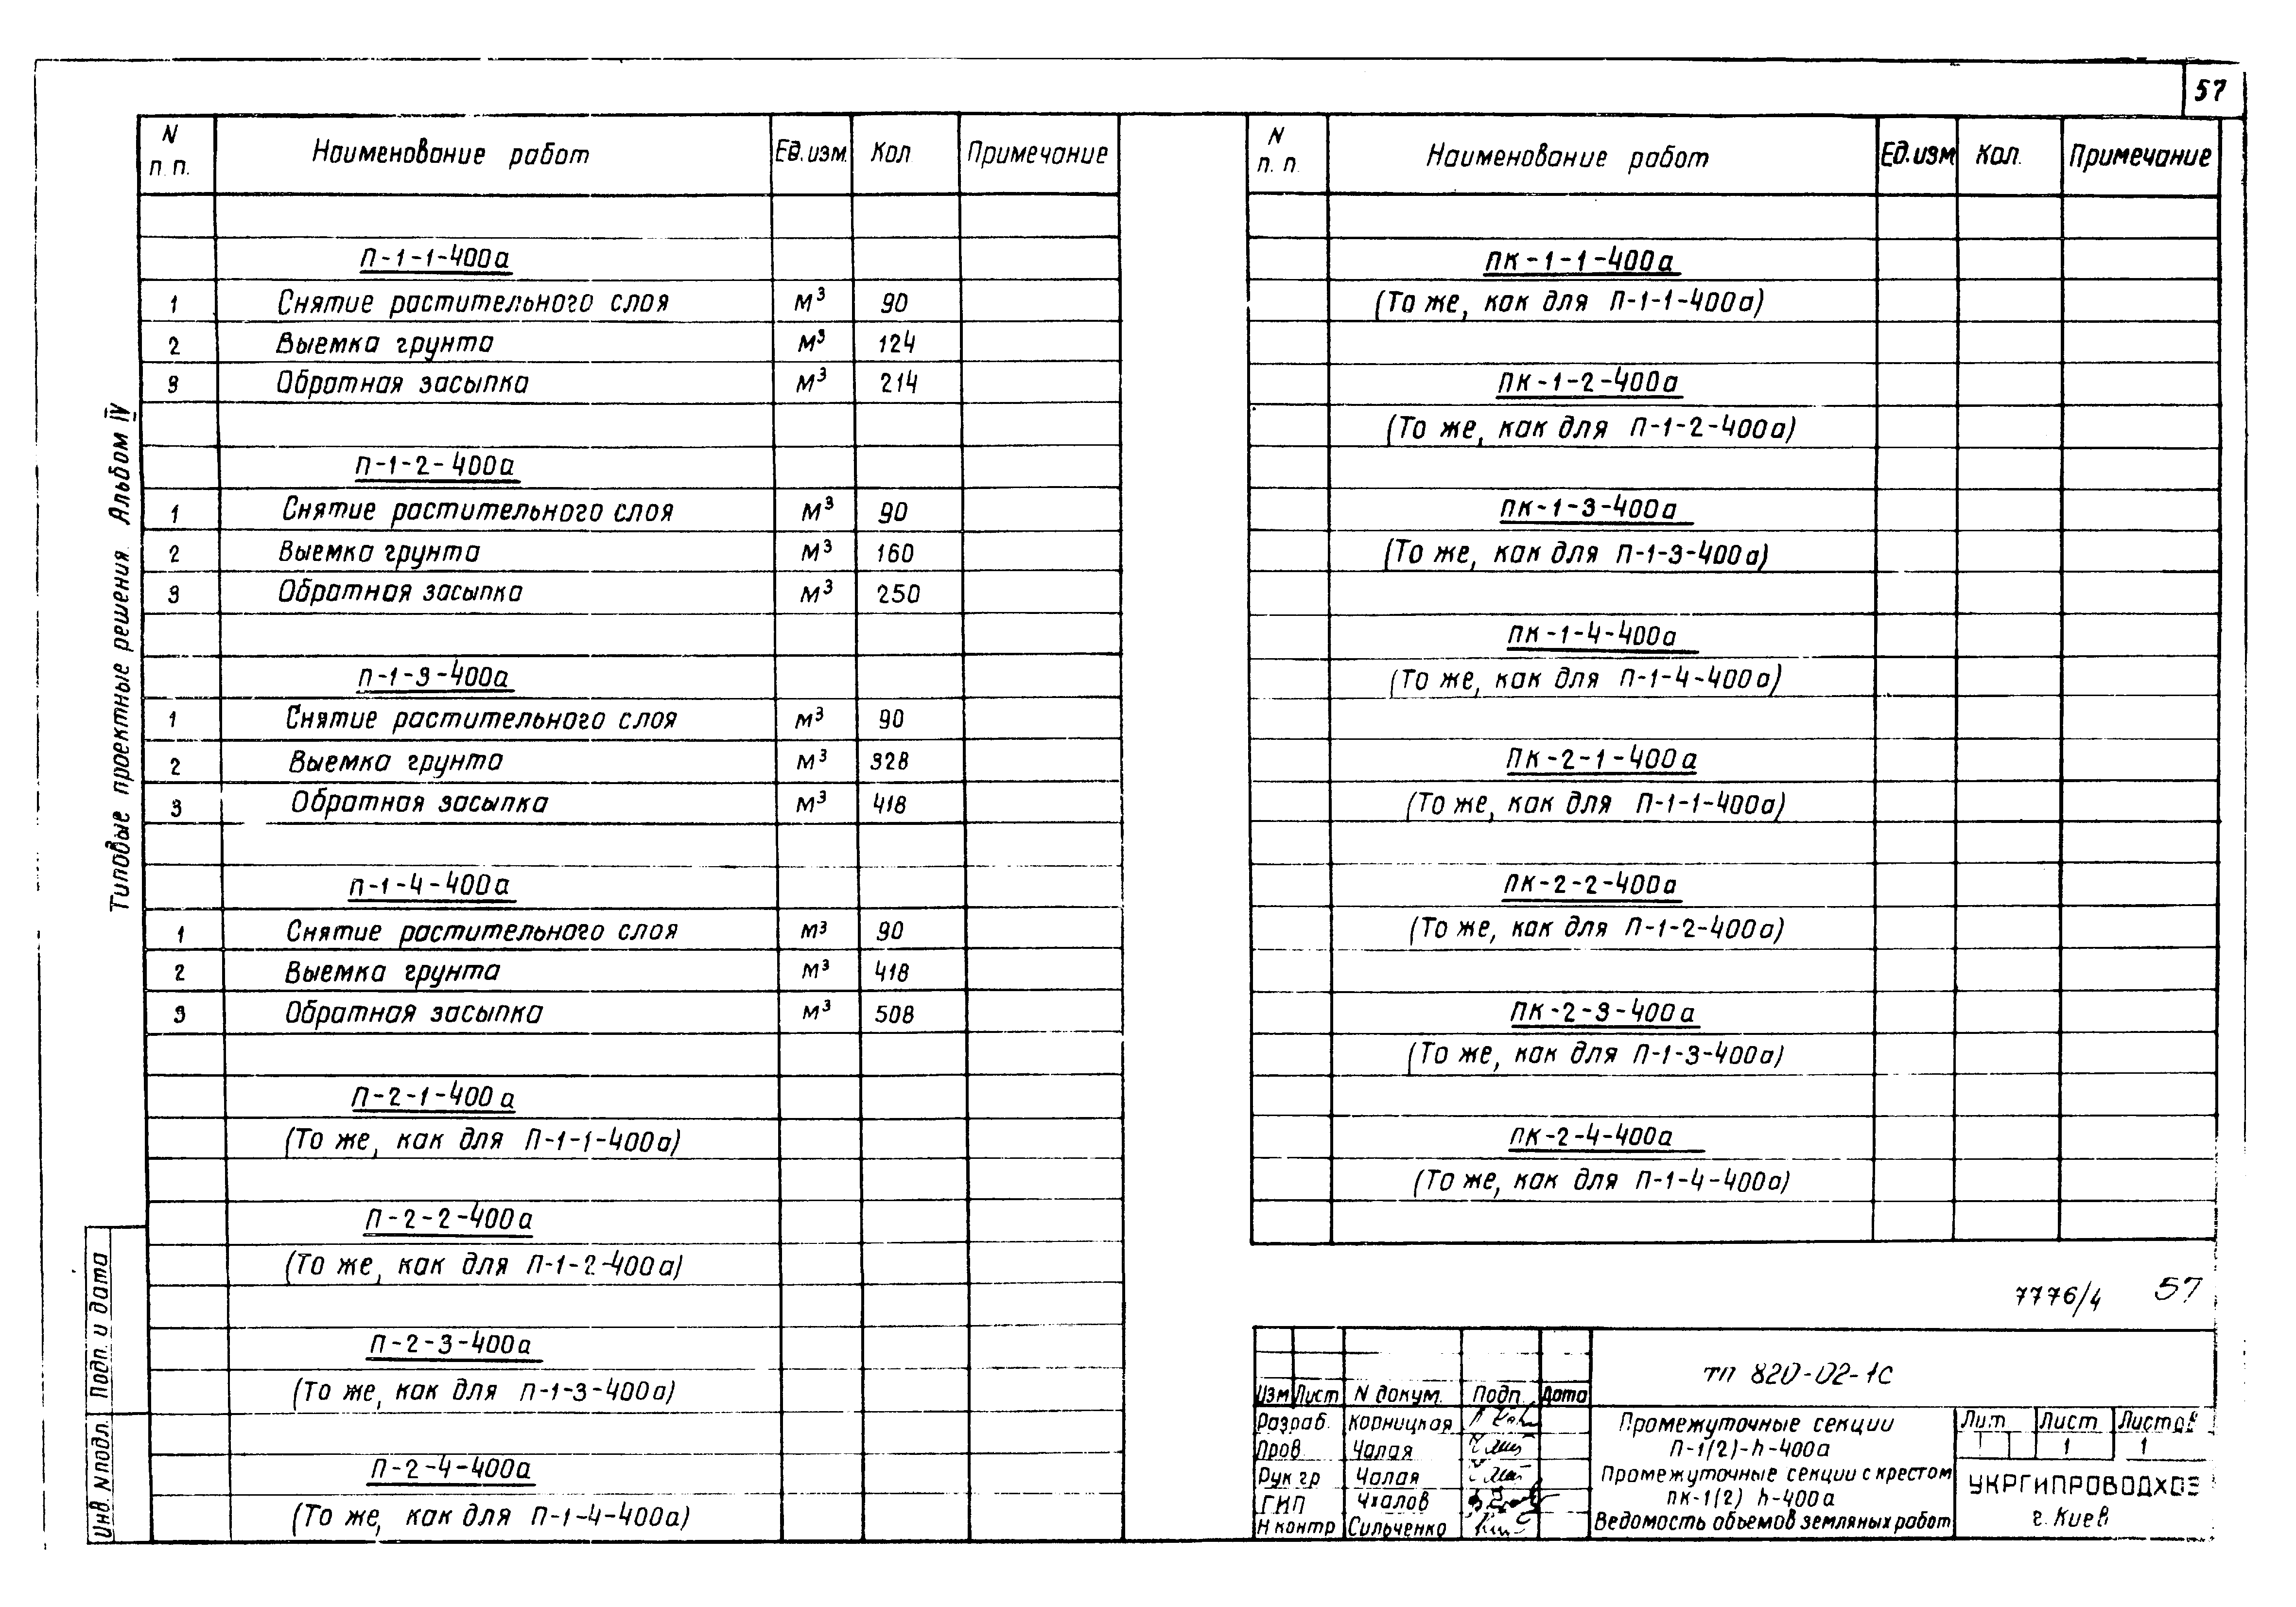 57
N п.п. Наименование работ Ед.изм. Кол Примечание
П-1-1-400а
1 Снятие растительного слоя м³ 90
2 Выемка грунта м³ 124
3 Обратная засыпка м³ 214
П-1-2-400а
1 Снятие растительного слоя м³ 90
2 Выемка грунта м³ 160
3 Обратная засыпка м³ 250
П-1-3-400а
1 Снятие растительного слоя м³ 90
2 Выемка грунта м³ 328
3 Обратная засыпка м³ 418
П-1-4-400а
1 Снятие растительного слоя м³ 90
2 Выемка грунта м³ 418
3 Обратная засыпка м³ 508
П-2-1-400а
(То же, как для П-1-1-400а)
П-2-2-400а
(То же, как для П-1-2-400а)
П-2-3-400а
(То же, как для П-1-3-400а)
П-2-4-400а
(То же, как для П-1-4-400а)
N п.п. Наименование работ Ед.изм Кол. Примечание
ПК-1-1-400а
(То же, как для П-1-1-400а)
ПК-1-2-400а
(То же, как для П-1-2-400а)
ПК-1-3-400а
(То же, как для П-1-3-400а)
ПК-1-4-400а
(То же, как для П-1-4-400а)
ПК-2-1-400а
(То же, как для П-1-1-400а)
ПК-2-2-400а
(То же, как для П-1-2-400а)
ПК-2-3-400а
(То же, как для П-1-3-400а)
ПК-2-4-400а
(То же, как для П-1-4-400а)
Типовые проектные решения. Альбом IV
Инв. N подл. Подп. и дата
7776/4 57
ТП 820-02-1С
Изм Лист N докум. Подп. Дата
Разраб. Корницкая
Пров. Чалая
Рук гр Чалая
ГИП Чхалов
Н контр Сильченко
Промежуточные секции
П-1(2)-h-400а
Промежуточные секции с крестом
ПК-1(2) h-400а
Ведомость объемов земляных работ
Лит Лист Листов
1 1
УКРГИПРОВОДХОЗ
г. Киев